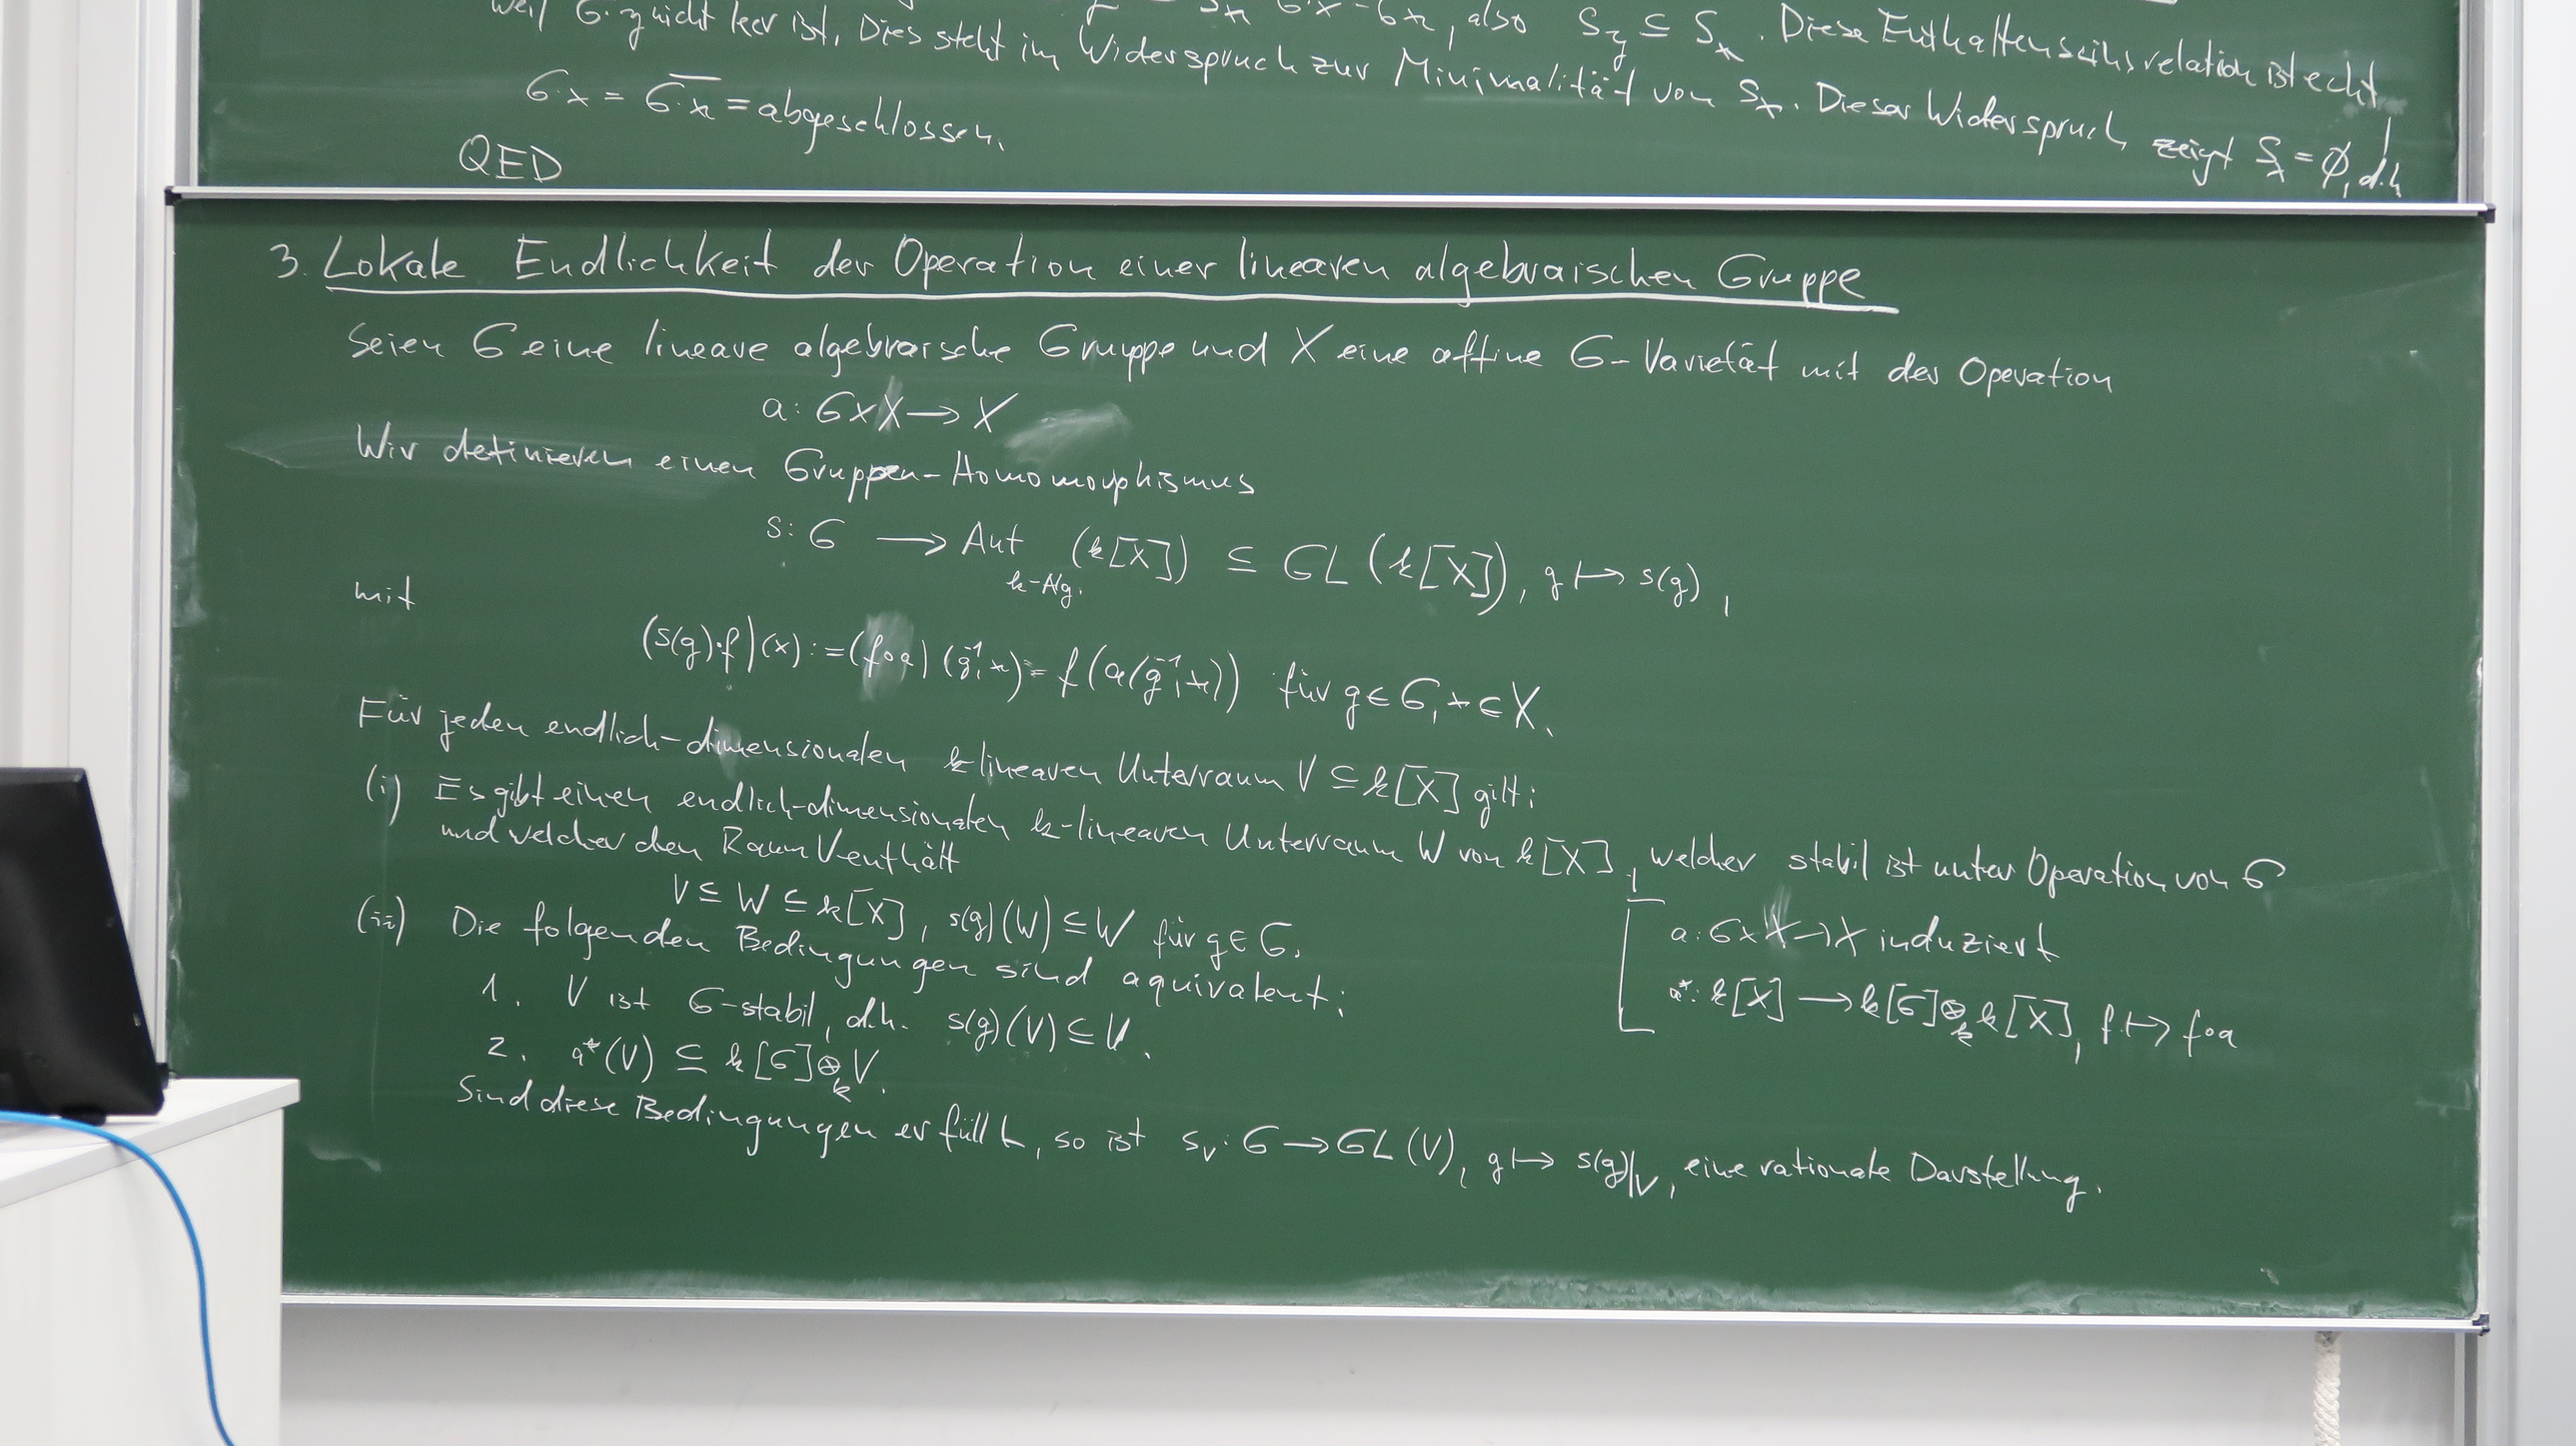 weil G·y nicht leer ist. Dies steht im Widerspruch zur Minimalität von S_x. Dieser Widerspruch zeigt S_x = ∅, d.h.
also S_y ⊆ S_x. Diese Enthaltenseinsrelation ist echt,
G·x = \overline{G·x} = abgeschlossen.
QED
3. Lokale Endlichkeit der Operation einer linearen algebraischen Gruppe
Seien G eine lineare algebraische Gruppe und X eine affine G-Varietät mit der Operation
a: G×X → X
Wir definieren einen Gruppen-Homomorphismus
s: G → Aut_{k-Alg.}(k[X]) ⊆ GL(k[X]), g ↦ s(g),
mit
(s(g)·f)(x) := (f∘a)(g⁻¹, x) = f(a(g⁻¹, x)) für g ∈ G, x ∈ X.
Für jeden endlich-dimensionalen k-linearen Unterraum V ⊆ k[X] gilt:
(i) Es gibt einen endlich-dimensionalen k-linearen Unterraum W von k[X], welcher stabil ist unter Operation von G
und welcher den Raum V enthält
V ⊆ W ⊆ k[X], s(g)(W) ⊆ W für g ∈ G.
(ii) Die folgenden Bedingungen sind aquivalent:
1. V ist G-stabil, d.h. s(g)(V) ⊆ V.
2. a*(V) ⊆ k[G]⊗_k V.
Sind diese Bedingungen erfüllt, so ist s_V: G → GL(V), g ↦ s(g)|_V, eine rationale Darstellung.
a: G×X → X induziert
a*: k[X] → k[G]⊗_k k[X], f ↦ f∘a